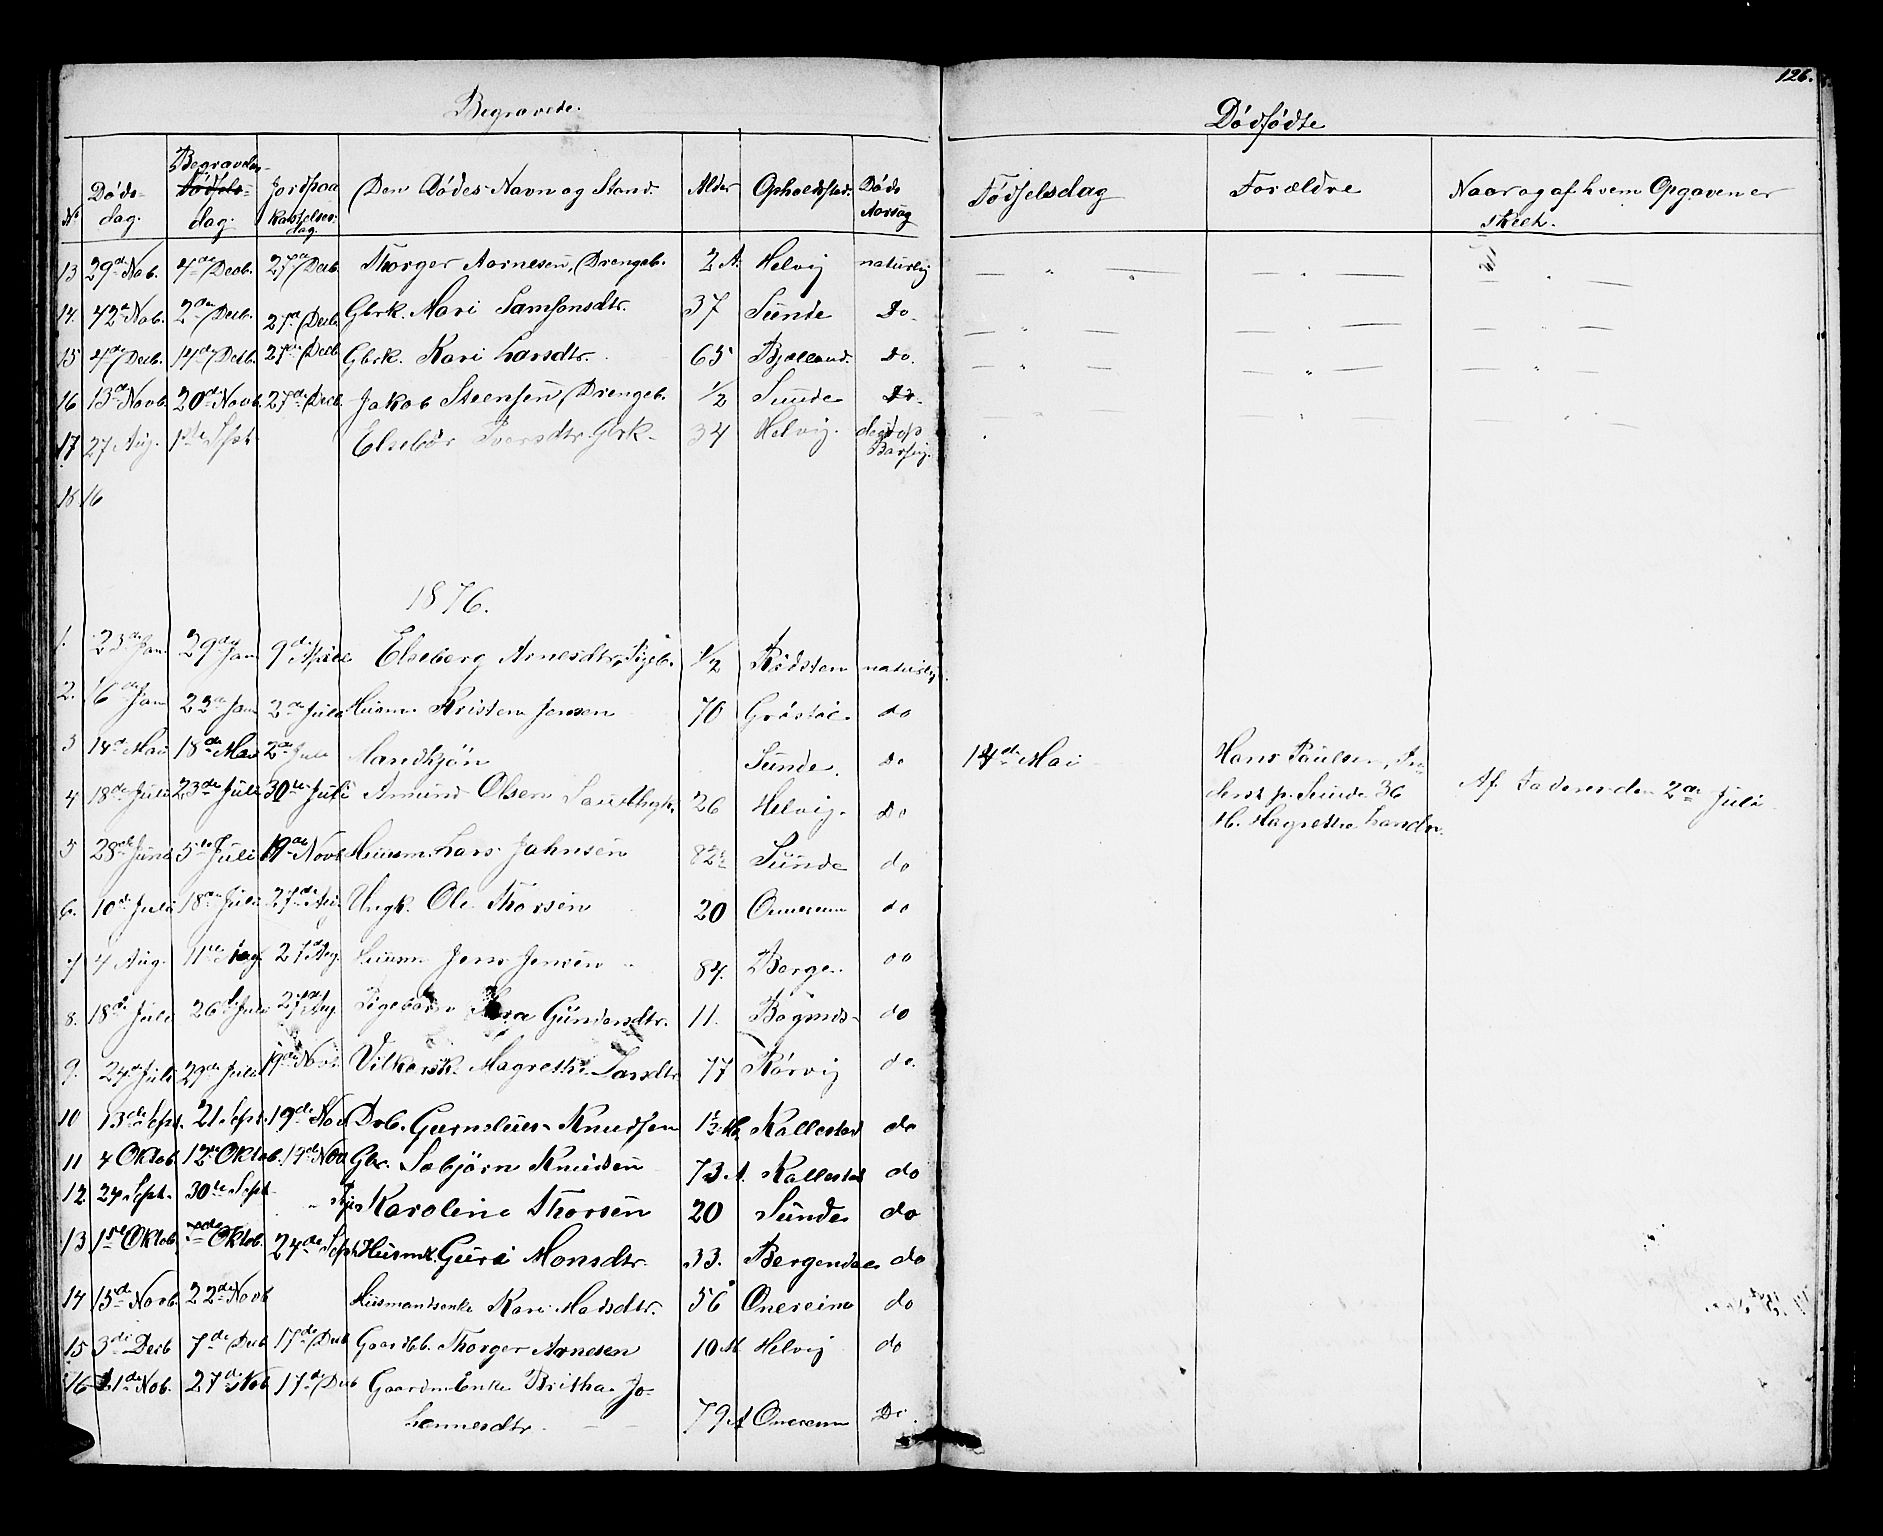 126.
Begravede.
No Døds- dag. Begravelses- dag. Jordpaa kastelses- dag. Den Dødes Navn og Stand. Alder Opholdsted. Døds Aarsag
13 29de Nob. 4de Decb. 27de Decb. Thorger Aornesen, Drengeb. 2 A. Helvig naturlig
14. 2den Decb. 27de Decb. Gbrk. Mari Samsonsdtr. 37 Sunde Do.
15 4de Decb. 14de Decb. 27de Decb. Gbrk. Kari Larsdtr. 65 Bjelland. Do.
16 13de Novb. 20de Novb. 27de Decb. Jakob Steensen, Drengeb. 1/2 Sunde Do.
17 27 Aug. 1ste Sept. Elsebør Iversdtr. Gbrk. 34 Helvig. død af Barsels.
18 16
1876.
1. 23de Jan 29de Jan 9de April Elseberg Arnesdtr, Pigeb. 1/2 Rødsten naturlig
2. 16de Jan 23de Jan 2de Juli Husm. Kristen Jensen 70 do
3 14de Mai 18de Mai 2de Juli Mandkjøn Sunde. Do
4 18de Juli 23de Juli 30te Juli Amund Olsen 26 Helvig. Do
5 28de Juni 5te Juli 19de Novb Husm. Lars Jahnsen 82 Sunde do
6. 10de Juli 18de Juli 27de Aug Ungk. Ole Thorsen 20 Onereim do
7 4 Aug. 11te Aug. 27de Aug. Husm. Jens Jensen 84. Berge. do
8. 18de Juli 26de Juli 27de Aug. Pigebarn Gundersdtr. 11. do
9. 24de Juli 29de Juli 19de Novb. Magrethe Larsdtr 77 Rørvig do.
10 13de Sept. 21 Sept. 19de Nov Drb. Knudsen Kallestad do
11 4 Oktob. 12te Oktob. 19de Nov Gbr. Sebjørn Knudsen 73 A. Kallestad do
12. 24 Sept. 30te Sept. " Pige Karoline Thorsen 20 Sunde do
13 1ste Oktob. Oktob. 24de Sept Husmk. Guri Monsdtr. 33. Bergendal do
14 15de Novb. 22de Novb Husmandsenke Kari Madsdtr. 56 Onereim do
15 3de Decb 7de Decb 17de Decb Gaardbb. Thorger Arnesen 10 M Helvig do
16 21de Nob. 27de Nob 17de Decb Gaardm. Enke Britha Jo-
hannesdtr. 79 A Onereim Do.
Dødfødte
Fødselsdag Forældre Naar og af hvem Opgaven er
skeeh.
14de Mai
Hans Paulsen,
p. Sunde 36
M. Magrethe Larsdtr.
Af Faderen den 2de Juli